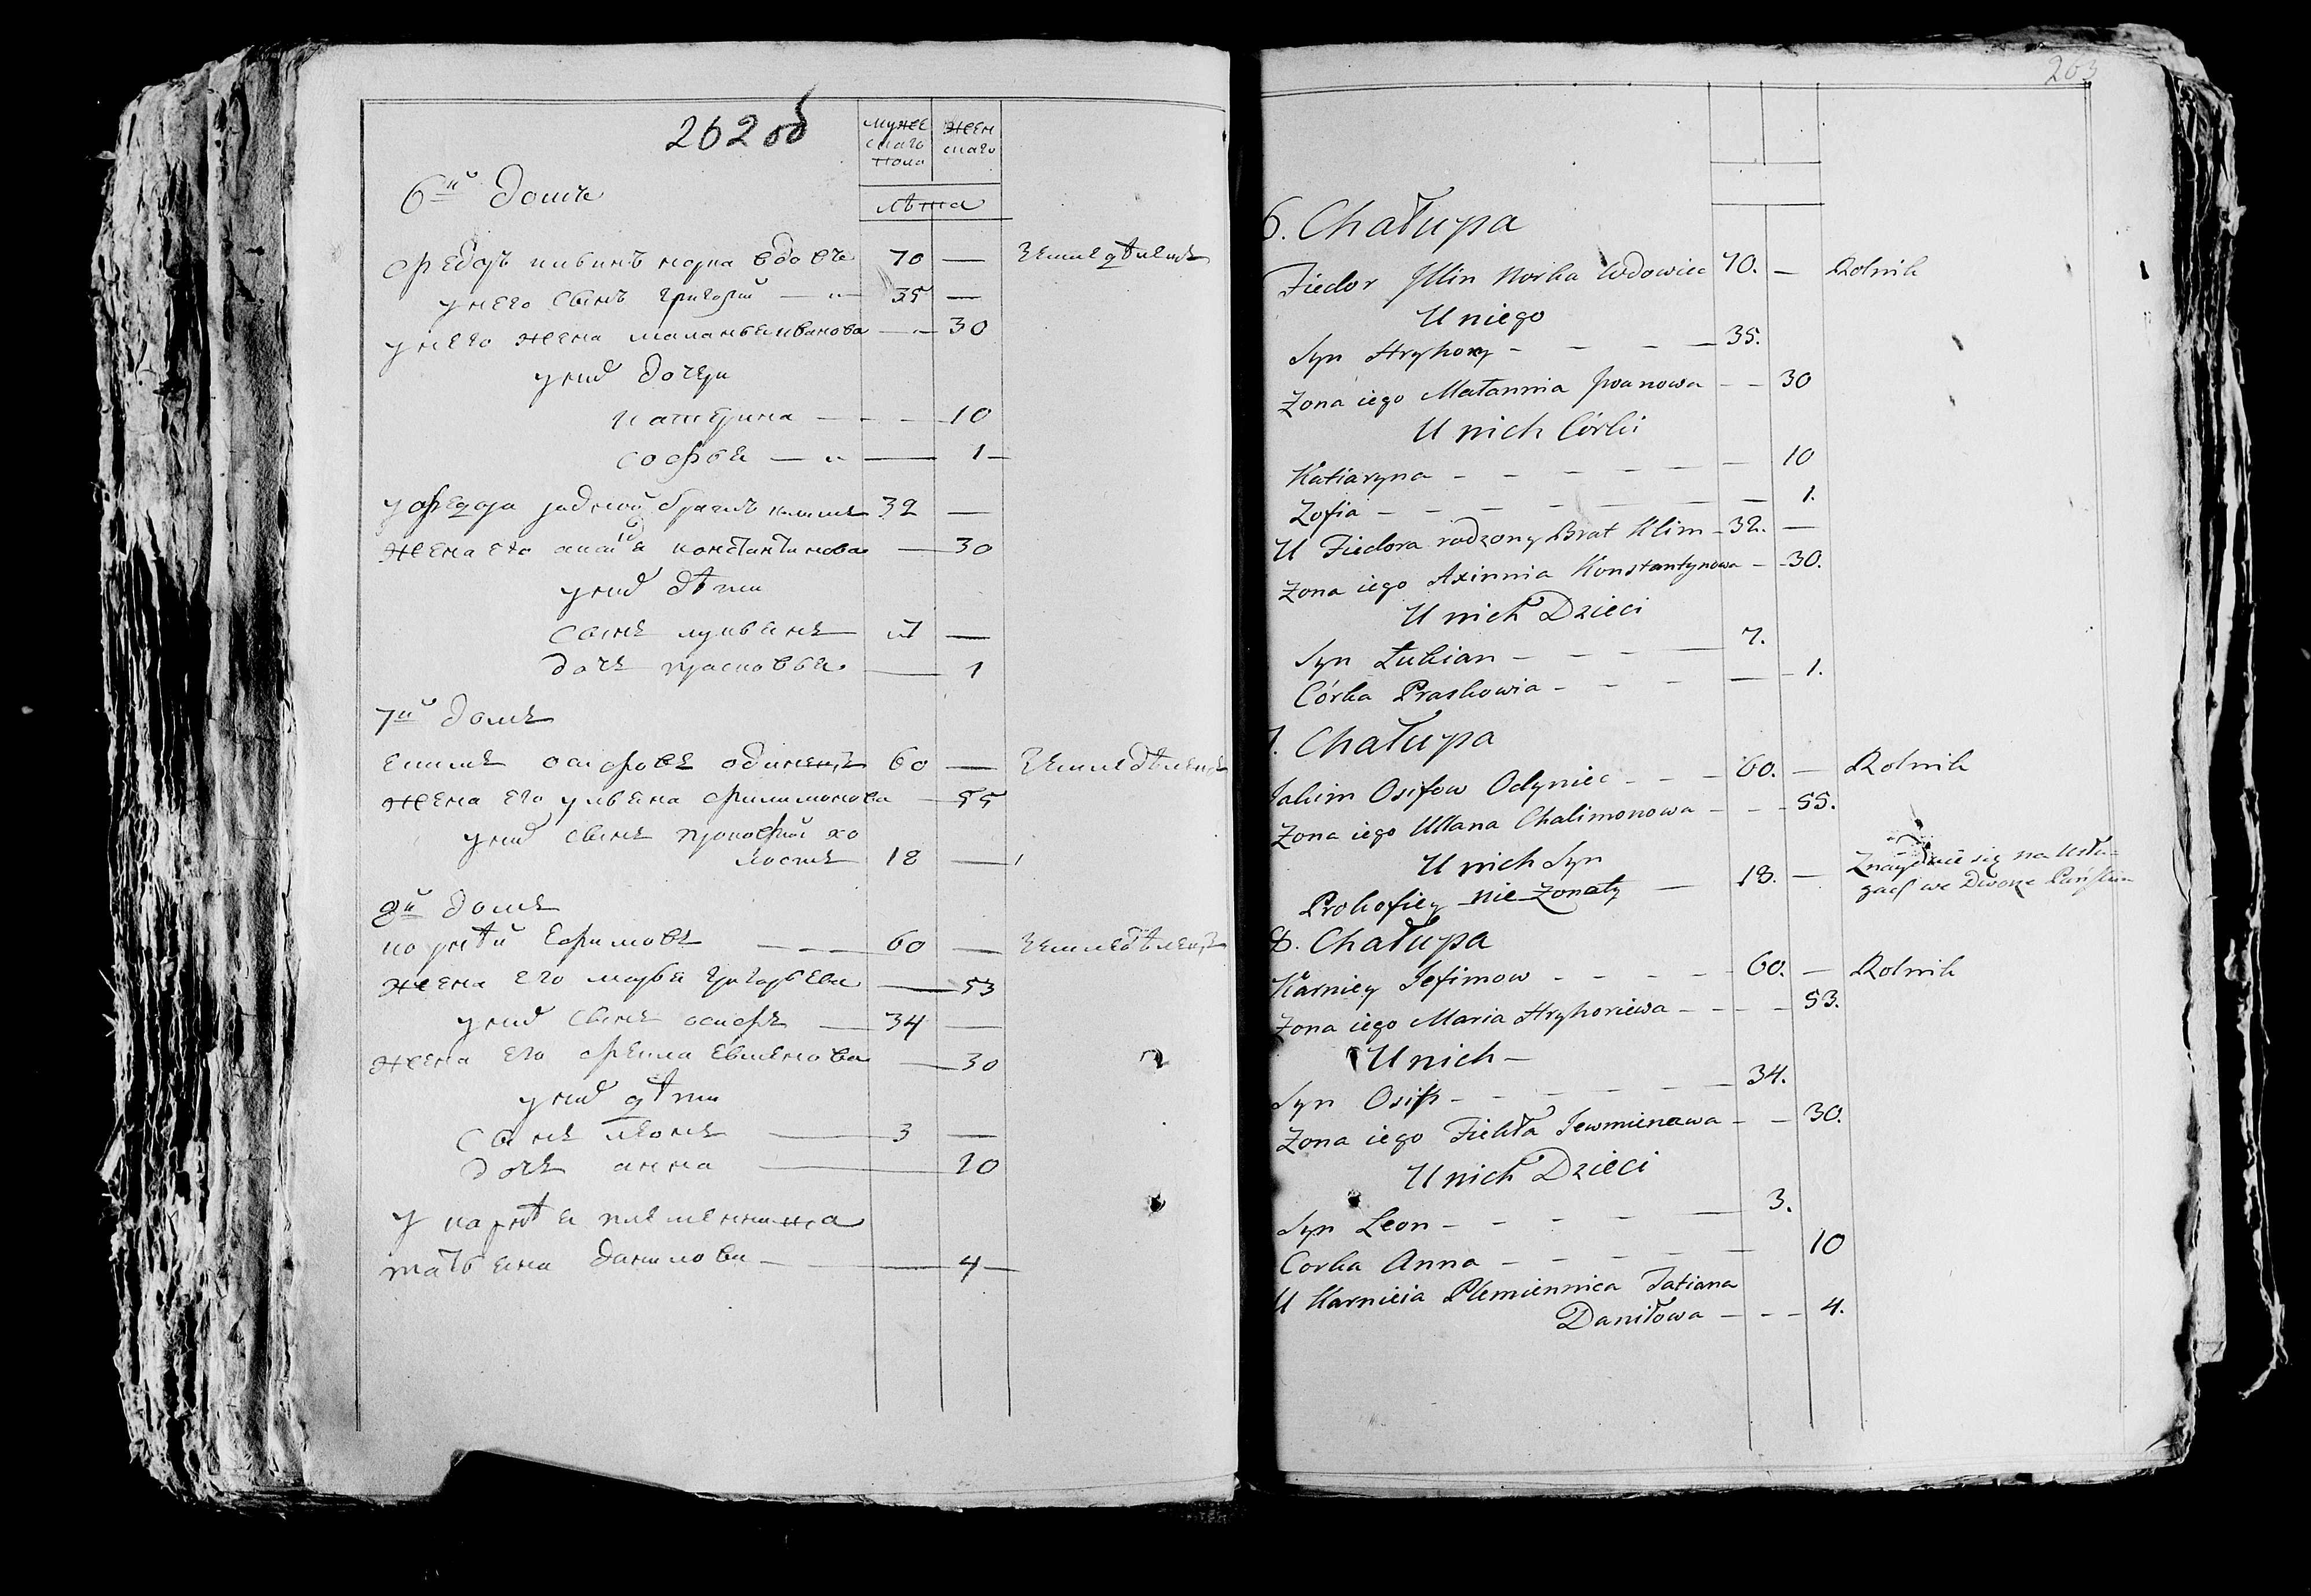 262 об
муже
скаго
пола
жен
скаго
лѣта
6й домъ
Федоръ норка вдовъ 70 — Земледѣлецъ
унего сынъ григорий — „— 35 —
унего жена маланья иванова — „— 30
уних дочери
катерина — - - 10
софья — „ — 1 —
уфедора родной братъ климъ 32 —
жена его константинова — 30
уних дѣти
сынъ лукьянъ 7 —
дочь прасковья — 1
7й домъ
екимъ осифовъ одинецъ 60 — Земледѣлецъ
жена его ульяна филимонова — 55
уних сынъ прокофий хо
лостъ 18 —
8й домъ
корнѣй Ефимовъ — — 60 — Земледѣлецъ
жена его марья григорьева — 53
уних сынъ осифъ — 34 —
жена его фекла евменова — 30
уних дѣти
сынъ леонъ — 3 —
дочь анна — 10
у карнѣя племенница
татьяна данилова — — 4 —
263
6. Chałupa
Fiedor Illin Norka Wdowiec 70. — Rolnik
U niego
Syn Hryhory - - - — 35.
Zona iego Małannia Jwanowa - - 30
U nich Córki
Katiaryna - - - - - — — 10
Zofia - - - - - — — 1.
U Fiedora rodzony Brat Klim - 32. —
Zona iego Axinnia Konstantynowa - - 30.
U nich Dzieci
Syn Łukian - - - — 7.
Córka Praskowia - - - — - 1.
7. Chałupa
Jakim Osifow Odyniec - - - 60. — Rolnik
Zona iego Ullana Chalimonowa - - - 55.
U nich Syn
Prokofiey nie Zonaty — 18. — Znayduie się na Usłu-
gach we Dworze
8. Chałupa
Karniey Jefimow - - - - 60. — Rolnik
Zona iego Maria Hryhoriewa - - - - 53.
U nich -
Syn Osif - - - - — 34.
Zona iego Fiekła Jewmienowa - - 30.
U nich Dzieci
Syn Leon - - - - — 3.
Corka Anna - - - - - — 10
U Karnieia Plemiennica Tatiana
Daniłowa - - - 4.